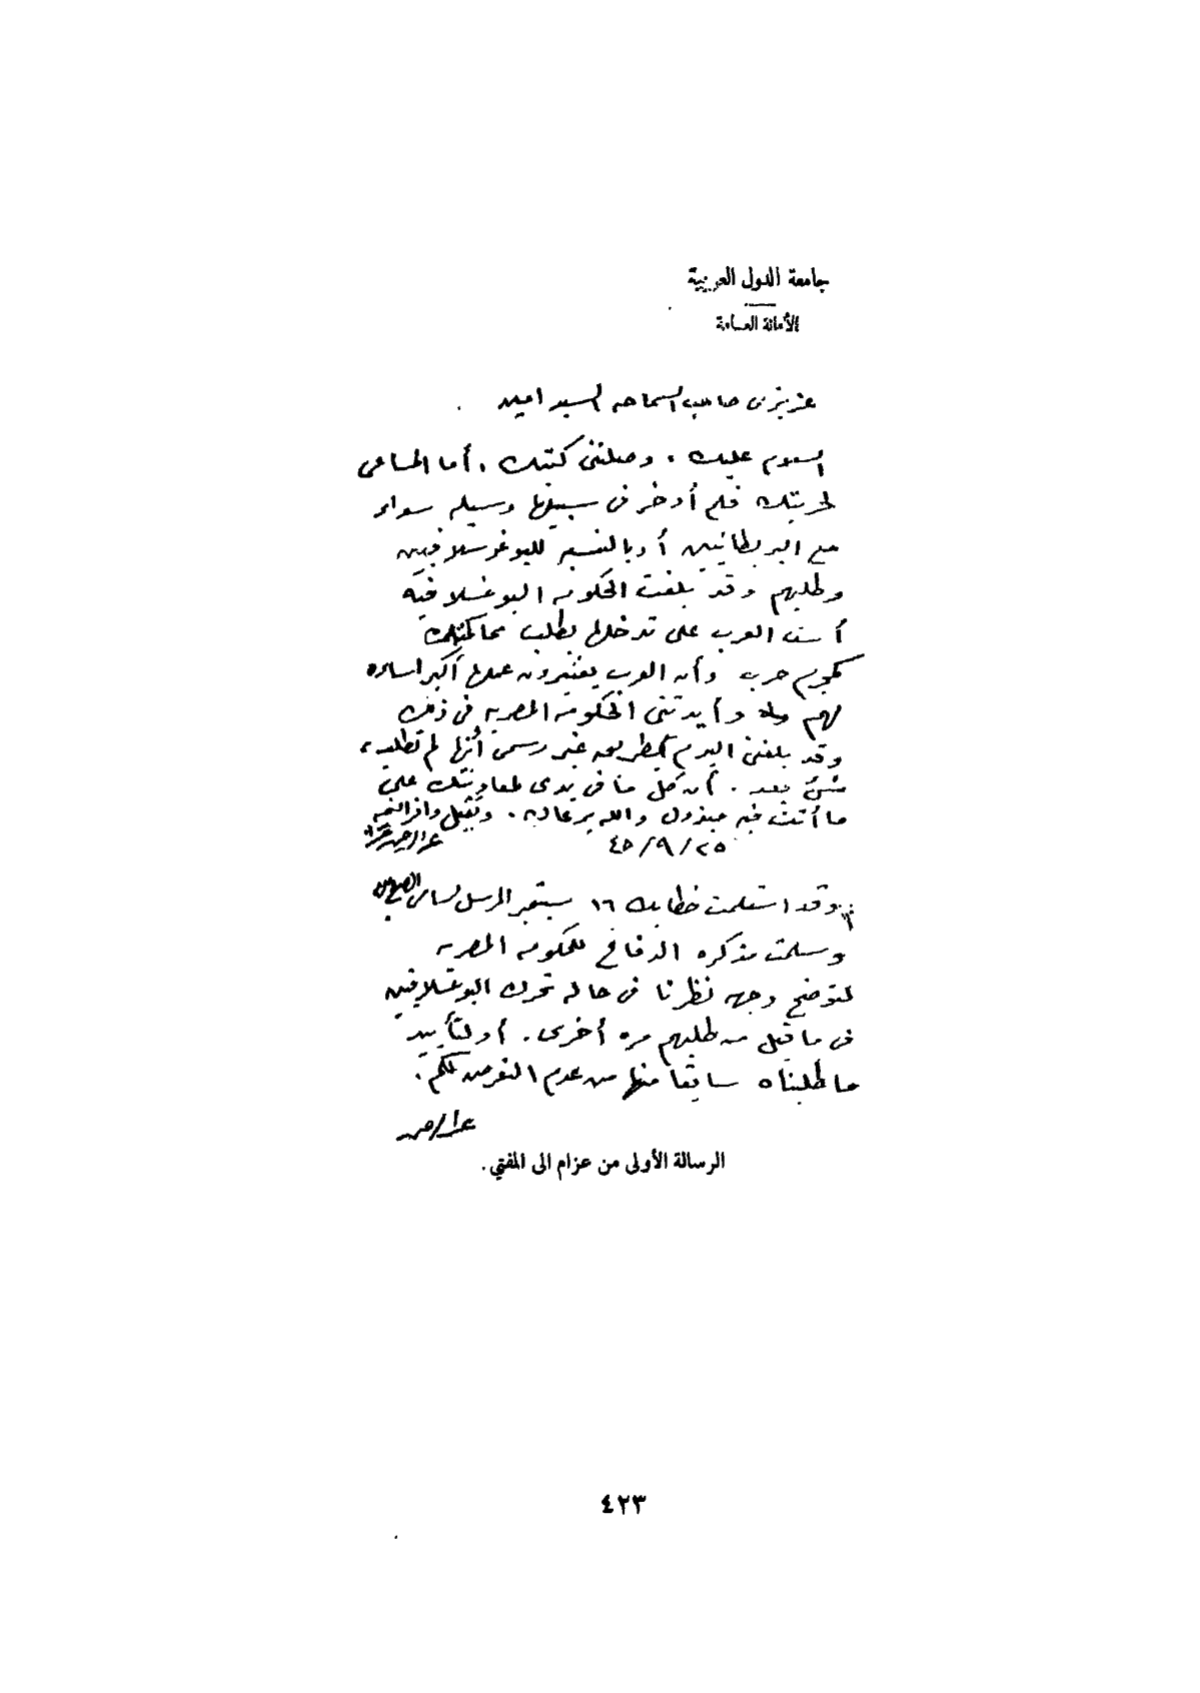 جامعة الدول العربية
الأمانة العامة
عزيزى صاحب السماحه السيد امين
السلام عليك . وصلتنى كتبك . أما المساعى
لحريتك فلم أدخر فى سبيلها وسيله سواء
مع البريطانيين أو بالنسبه لليوغوسلافيين
وطلبهم وقد بلغت الحكومه اليوغسلافيه
أسف العرب على تدخلها بطلب محاكمتك
كمجرم حرب وأن العرب يعتبرون عملها أكبر اساءه
لهم وأيدتنى الحكومه المصريه فى ذلك
وقد بلغنى اليوم بطريقه غير رسمى أنها لم تطلب
شئ بعد . أن كل ما فى يدى لمعاونتك على
ما أنت فيه مبذول والله يرعاك . وتقبل وافر التحيه
٤٥/٩/٢٥ عبد الرحمن عزام
وقد استلمت خطابك ١٦ سبتمبر المرسل لسامى
وسلمت مذكره الدفاع للحكومه المصريه
لتوضح وجهه نظرنا فى حاله تحرك اليوغسلافيين
فى ما قيل من طلبهم مره أخرى . أو لتأييد
ما طلبناه سابقا منها من عدم التعرض لكم .
عبد الرحمن
الرسالة الأولى من عزام الى المفتي .
٤٢٣